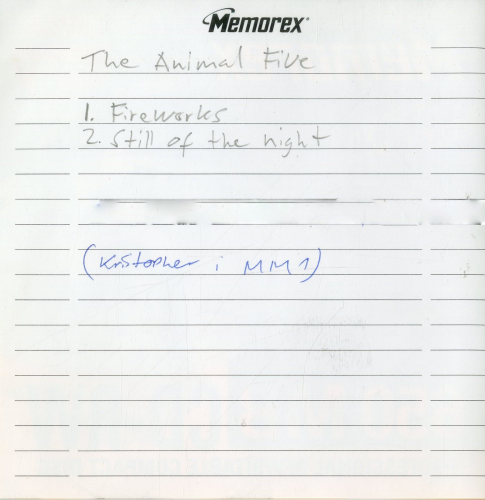 Memorex
The Animal Five
1. Fireworks
2. Still of the night
(Kristopher i MM1)